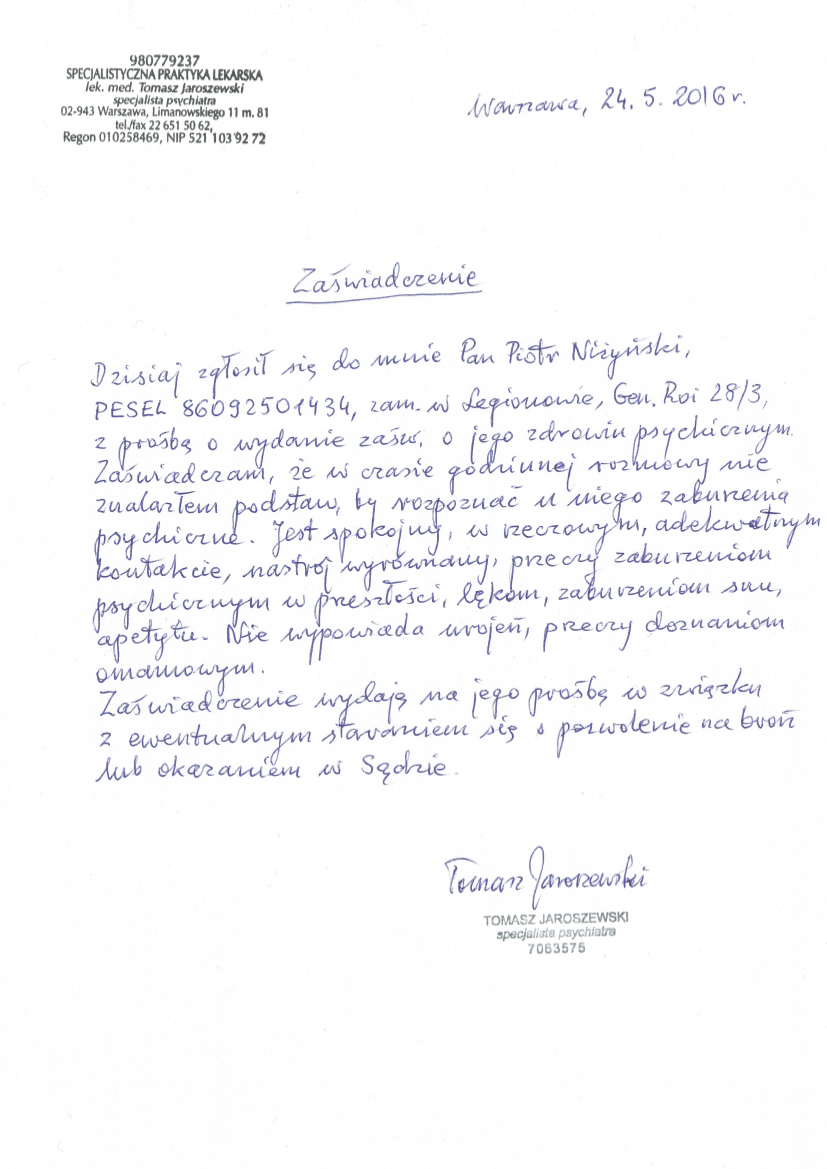 980779237
SPECJALISTYCZNA PRAKTYKA LEKARSKA
lek. med. Tomasz Jaroszewski
specjalista psychiatra
02-943 Warszawa, Limanowskiego 11 m. 81
tel./fax 22 651 50 62,
Regon 010258469, NIP 521 103 92 72
Warszawa, 24. 5. 2016 r.
Zaświadczenie
Dzisiaj zgłosił się do mnie Pan Piotr Niżyński,
PESEL 86092501434, zam. w Legionowie, Gen. Roi 28/3,
z prośbą o wydanie zaśw. o jego zdrowiu psychicznym.
Zaświadczam, że w czasie godzinnej rozmowy nie
znalazłem podstaw, by rozpoznać u niego zaburzenia
psychiczne. Jest spokojny, w rzeczowym, adekwatnym
kontakcie, nastrój wyrównany, przeczy zaburzeniom
psychicznym w przeszłości, lękom, zaburzeniom snu,
apetytu. Nie wypowiada urojeń, przeczy doznaniom
omamowym.
Zaświadczenie wydaję na jego prośbę w związku
z ewentualnym staraniem się o pozwolenie na broń
lub okazaniem w Sądzie.
Tomasz Jaroszewski
TOMASZ JAROSZEWSKI
specjalista psychiatra
7063575